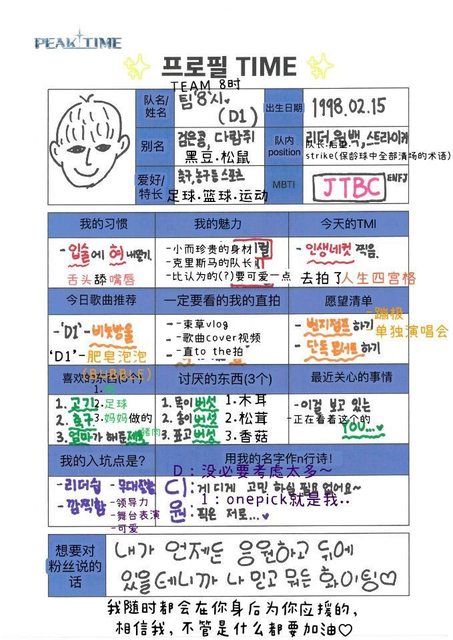 PEAK TIME
✨ 프로필 TIME ✨
TEAM 8时
队名/姓名
팀 8시 (D1)
出生日期
1998.02.15
别名
검은콩, 다람쥐
黑豆.松鼠
队内position
리더, 윙백, 스트라이커
队长.后卫.
strike(保龄球中全部清场的术语)
爱好/特长
축구, 농구등 스포츠
足球.篮球.运动
MBTI
JTBC
ENFJ
我的习惯
我的魅力
今天的TMI
- 입술에 혀 내밀기.
舌头舔嘴唇
-小而珍贵的身材
-克里斯马的队长
-比认为的(?)要可爱一点
- 인생네컷 찍음.
去拍了人生四宫格
今日歌曲推荐
一定要看的我的直拍
愿望清单
- 'D1' - 비눗방울
'D1'-肥皂泡泡
(BUBBLE)
-束草vlog
-歌曲cover视频
-直to the拍
- 번지점프 하기
-蹦极
- 단독 콘서트 하기
-单独演唱会
讨厌的东西(3个)
最近关心的事情
1. 고기
2. 축구
2.足球
3. 엄마가 해준
3.妈妈做的
1. 목이버섯
1.木耳
2. 송이버섯
2.松茸
3. 표고버섯
3.香菇
- 이걸 보고 있는
-正在看着这个的
YOU...♥
我的入坑点是?
用我的名字作n行诗!
- 리더쉽
- 무대
- 깜찍함
-领导力
-舞台表演
-可爱
D：没必要考虑太多~
디: 게 디게 고민 하실 필요 없어요~
1：onepick就是我..
원: 픽은 저로...♥
想要对粉丝说的话
내가 언제든 응원하고 뒤에
있을테니까 나 믿고 뭐든 화이팅♡
我随时都会在你身后为你应援的，
相信我，不管是什么都要加油♡